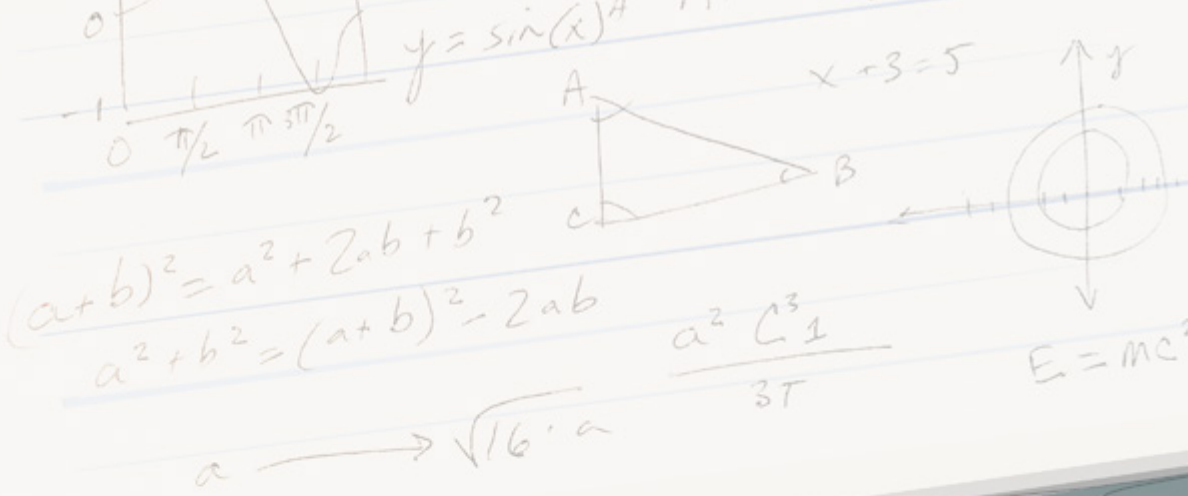 0
-1
0 π/2 π 3π/2
y = sin(x)^A
A
B
C
x + 3 = 5
y
(a+b)² = a² + 2ab + b²
a² + b² = (a+b)² - 2ab
a² C³1
3T
E = mc²
a → √16 · a